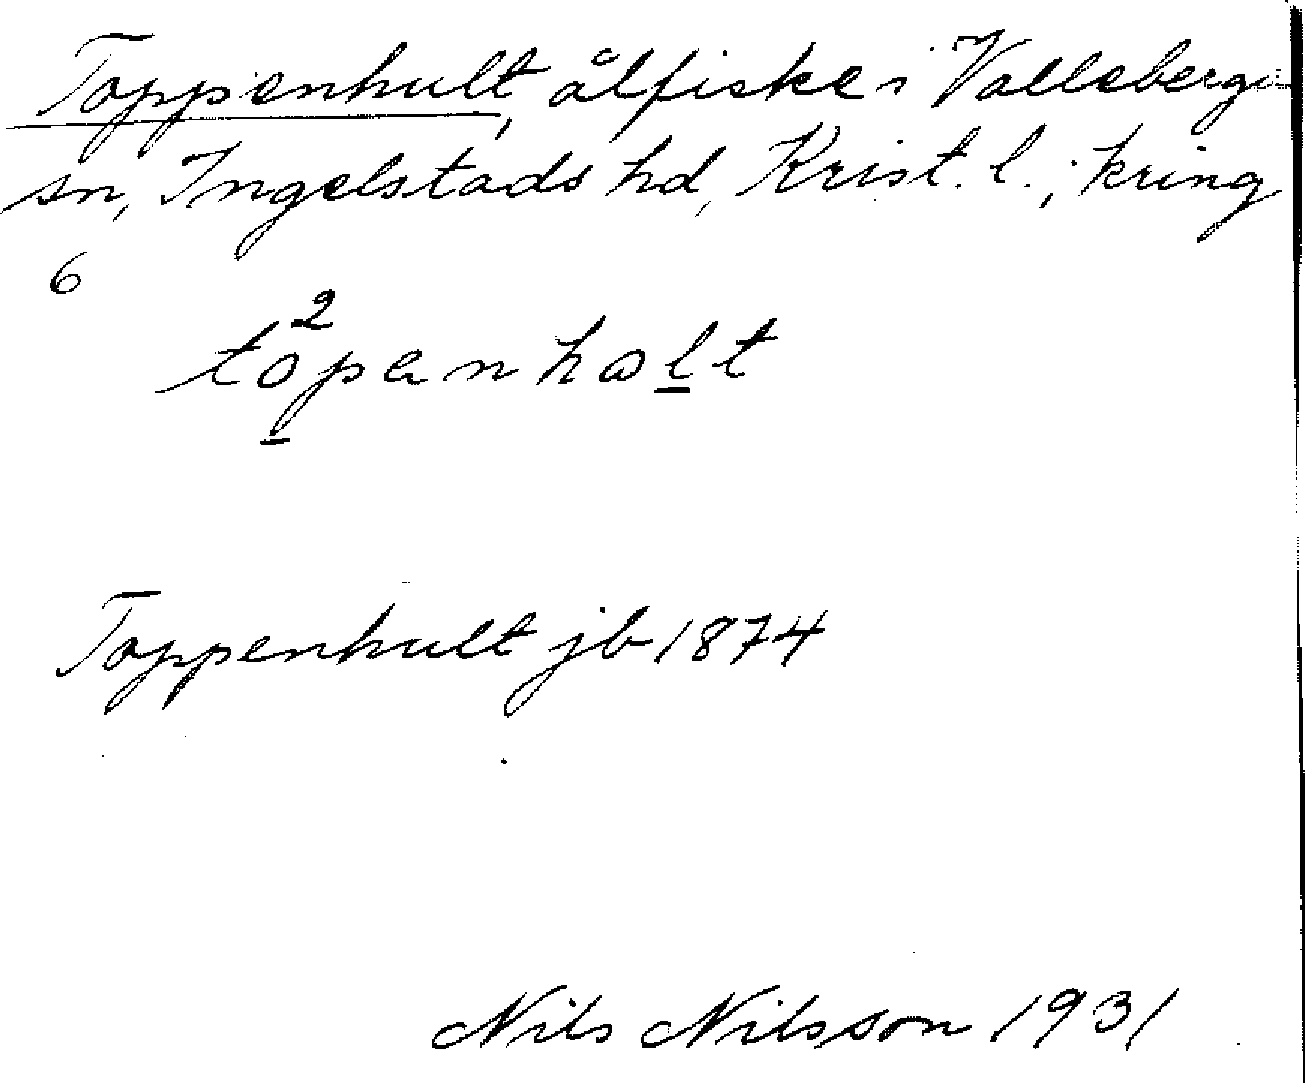 Toppenhult, ålfiske i Valleberga
sn, Ingelstads hd, Krist. l.; kring
6
2
topanhalt
Toppenhult jb 1874
Nils Nilsson 1931